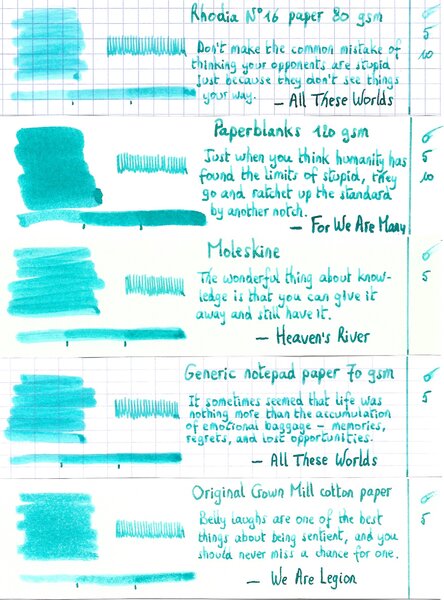 Rhodia N°16 paper 80 gsm
Don't make the common mistake of
thinking your opponents are stupid
just because they don't see things
your way.
— All These Worlds
5
10
Paperblanks 120 gsm
Just when you think humanity has
found the limits of stupid, they
go and ratchet up the standard
by another notch.
— For We Are Many
5
10
Moleskine
The wonderful thing about know-
ledge is that you can give it
away and still have it.
— Heaven's River
5
Generic notepad paper 70 gsm
It sometimes seemed that life was
nothing more than the accumulation
of emotional baggage – memories,
regrets, and lost opportunities.
— All These Worlds
5
Original Crown Mill cotton paper
Belly laughs are one of the best
things about being sentient, and you
should never miss a chance for one.
— We Are Legion
5